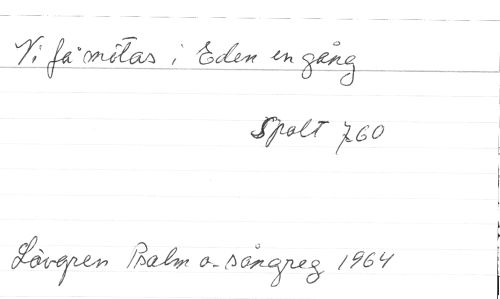 Vi få mötas i Eden en gång
Spalt 760
Lövgren Psalm o. sångreg 1964